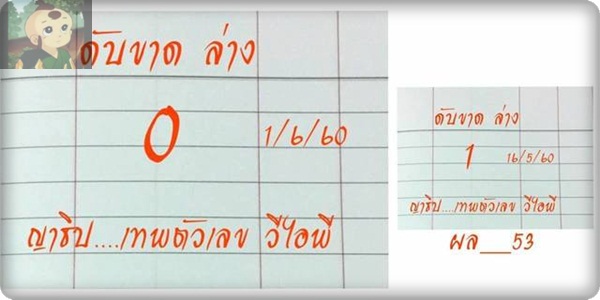 ดับขาด ล่าง
0
1/6/60
ญาธิป....เทพตัวเลข วีไอพี
ดับขาด ล่าง
1
16/5/60
ญาธิป....เทพตัวเลข วีไอพี
ผล__53